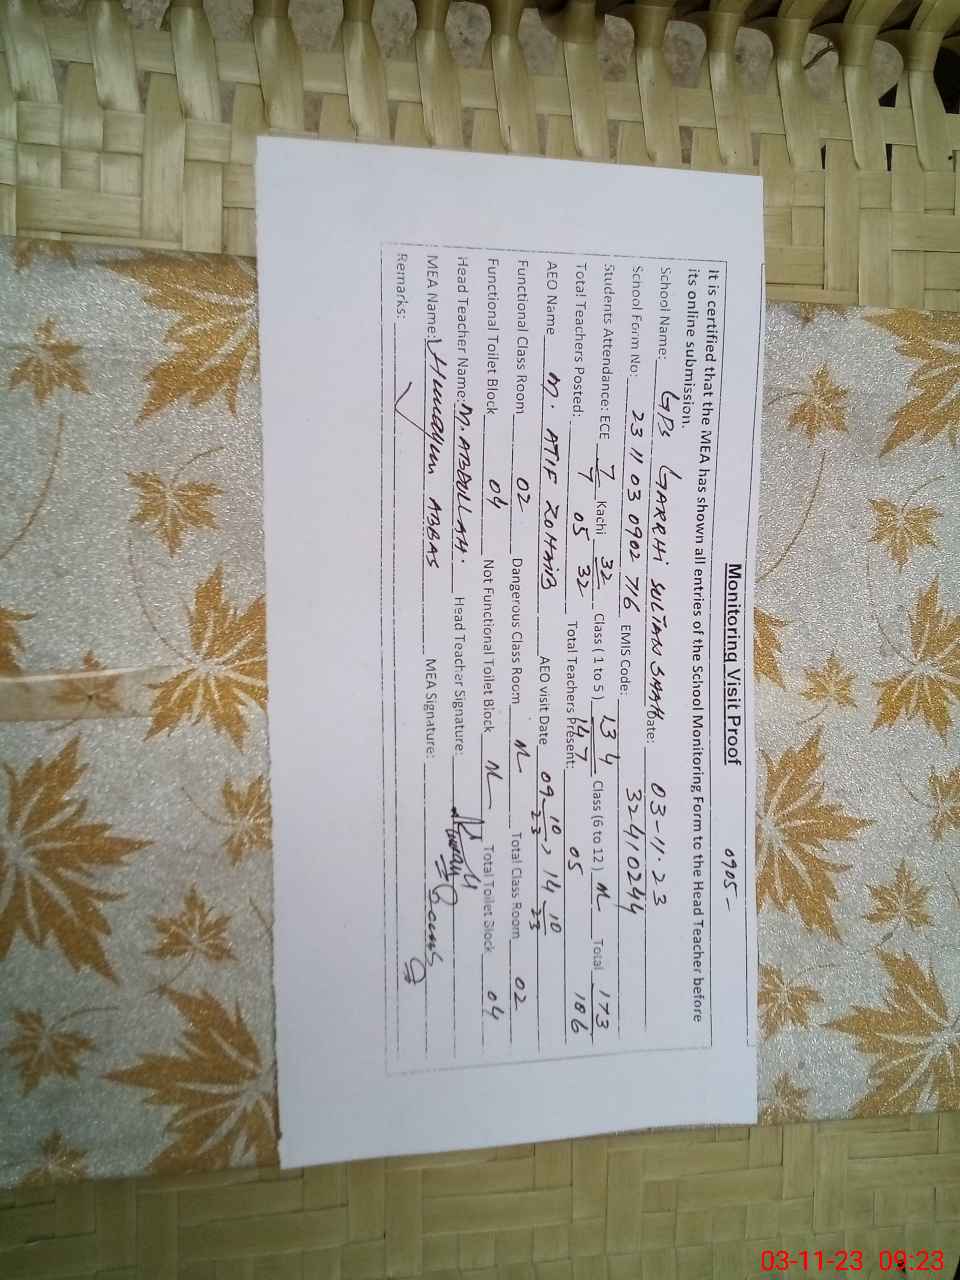 0905-
Monitoring Visit Proof
It is certified that the MEA has shown all entries of the School Monitoring Form to the Head Teacher before
its online submission.
School Name: GPS GARRHI SULTAN SHAH Date: 03-11-23
School Form No: 23 11 03 0902 716 EMIS Code: 32410244
Students Attendance: ECE 7/7 Kachi 32/32 Class (1 to 5) 134/147 Class (6 to 12) Total 173/186
Total Teachers Posted: 05 Total Teachers Present: 05
AEO Name M. ATIF ZOHAIB AEO visit Date 09 10/23 → 14 10/23
Functional Class Room 02 Dangerous Class Room Total Class Room 02
Functional Toilet Block 04 Not Functional Toilet Block Total Toilet Block 04
Head Teacher Name: M. ABDULLAH. Head Teacher Signature:
MEA Name: Humayun ABBAS MEA Signature:
Remarks:
03-11-23 09:23